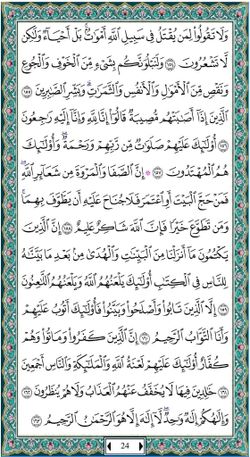 وَلَا تَقُولُوا۟ لِمَن يُقْتَلُ فِى سَبِيلِ ٱللَّهِ أَمْوَٰتٌۢ بَلْ أَحْيَآءٌ وَلَٰكِن
لَّا تَشْعُرُونَ ١٥٤ وَلَنَبْلُوَنَّكُم بِشَىْءٍ مِّنَ ٱلْخَوْفِ وَٱلْجُوعِ
وَنَقْصٍ مِّنَ ٱلْأَمْوَٰلِ وَٱلْأَنفُسِ وَٱلثَّمَرَٰتِ ۗ وَبَشِّرِ ٱلصَّٰبِرِينَ ١٥٥
ٱلَّذِينَ إِذَآ أَصَٰبَتْهُم مُّصِيبَةٌ قَالُوٓا۟ إِنَّا لِلَّهِ وَإِنَّآ إِلَيْهِ رَٰجِعُونَ ١٥٦
أُو۟لَٰٓئِكَ عَلَيْهِمْ صَلَوَٰتٌ مِّن رَّبِّهِمْ وَرَحْمَةٌ ۖ وَأُو۟لَٰٓئِكَ
هُمُ ٱلْمُهْتَدُونَ ١٥٧ ۞ إِنَّ ٱلصَّفَا وَٱلْمَرْوَةَ مِن شَعَآئِرِ ٱللَّهِ ۖ
فَمَنْ حَجَّ ٱلْبَيْتَ أَوِ ٱعْتَمَرَ فَلَا جُنَاحَ عَلَيْهِ أَن يَطَّوَّفَ بِهِمَا ۚ
وَمَن تَطَوَّعَ خَيْرًا فَإِنَّ ٱللَّهَ شَاكِرٌ عَلِيمٌ ١٥٨ إِنَّ ٱلَّذِينَ
يَكْتُمُونَ مَآ أَنزَلْنَا مِنَ ٱلْبَيِّنَٰتِ وَٱلْهُدَىٰ مِنۢ بَعْدِ مَا بَيَّنَّٰهُ
لِلنَّاسِ فِى ٱلْكِتَٰبِ ۙ أُو۟لَٰٓئِكَ يَلْعَنُهُمُ ٱللَّهُ وَيَلْعَنُهُمُ ٱللَّٰعِنُونَ
١٥٩ إِلَّا ٱلَّذِينَ تَابُوا۟ وَأَصْلَحُوا۟ وَبَيَّنُوا۟ فَأُو۟لَٰٓئِكَ أَتُوبُ عَلَيْهِمْ ۚ
وَأَنَا ٱلتَّوَّابُ ٱلرَّحِيمُ ١٦٠ إِنَّ ٱلَّذِينَ كَفَرُوا۟ وَمَاتُوا۟ وَهُمْ
كُفَّارٌ أُو۟لَٰٓئِكَ عَلَيْهِمْ لَعْنَةُ ٱللَّهِ وَٱلْمَلَٰٓئِكَةِ وَٱلنَّاسِ أَجْمَعِينَ
١٦١ خَٰلِدِينَ فِيهَا ۖ لَا يُخَفَّفُ عَنْهُمُ ٱلْعَذَابُ وَلَا هُمْ يُنظَرُونَ ١٦٢
وَإِلَٰهُكُمْ إِلَٰهٌ وَٰحِدٌ ۖ لَّآ إِلَٰهَ إِلَّا هُوَ ٱلرَّحْمَٰنُ ٱلرَّحِيمُ ١٦٣
24